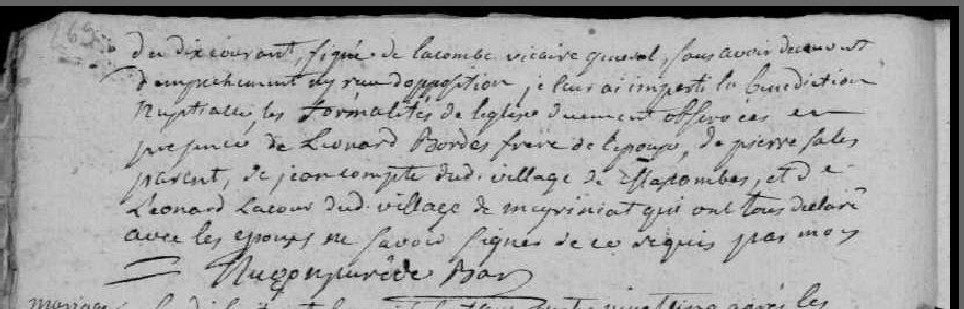 du dix courant, signé de lacombe vicaire general, sans avoir decouvert
d'empechement ny reçu d'opposition, je leur ai imparti la benediction
nuptiale, les formalités de leglise duement observées en
presence de Leonard Bordes frere de lepoux, de pierre sales
parent, de jean compte dud. village de Lascombes, et de
Leonard Lacour dud. village de meyriniat qui ont tous declaré
avec les epoux ne savoir signer de ce requis par moy
curé de Bar
mariage